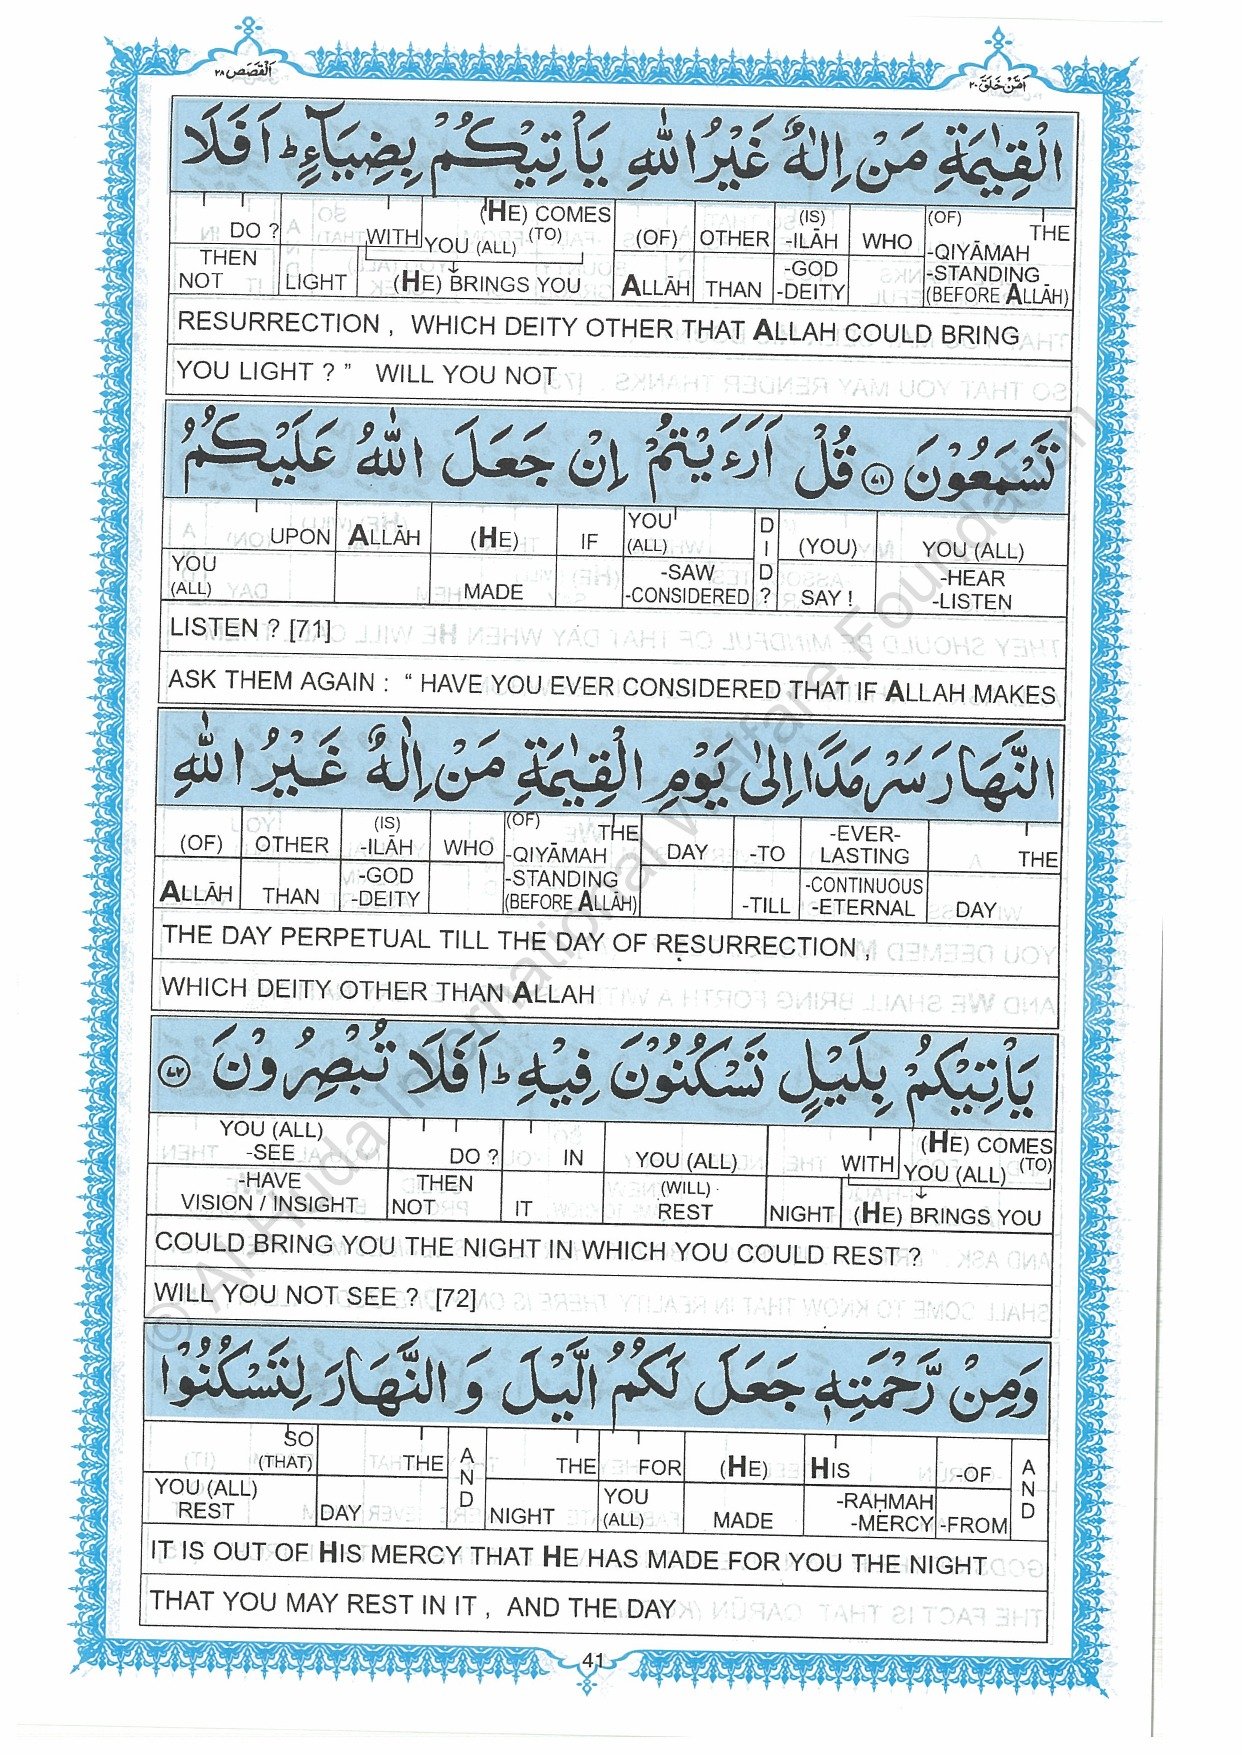 اَلْقَصَص ٢٨
اَمَّنْ خَلَقَ ٢٠
الْقِيٰمَةِ مَنْ اِلٰهٌ غَيْرُ اللّٰهِ يَاْتِيْكُمْ بِضِيَآءٍ ؕ اَفَلَا
DO ? WITH (HE) COMES YOU (ALL) (TO) (OF) OTHER (IS) -ILĀH WHO (OF) THE -QIYĀMAH
THEN NOT LIGHT (HE) BRINGS YOU ALLĀH THAN -GOD -DEITY -STANDING (BEFORE ALLĀH)
RESURRECTION , WHICH DEITY OTHER THAT ALLAH COULD BRING
YOU LIGHT ? ” WILL YOU NOT
تَسْمَعُوْنَ ﴿٧١﴾ قُلْ اَرَءَيْتُمْ اِنْ جَعَلَ اللّٰهُ عَلَيْكُمُ
UPON ALLĀH (HE) IF YOU (ALL) DID? (YOU) YOU (ALL)
YOU (ALL) MADE -SAW -CONSIDERED SAY ! -HEAR -LISTEN
LISTEN ? [71]
ASK THEM AGAIN : “ HAVE YOU EVER CONSIDERED THAT IF ALLAH MAKES
النَّهَارَ سَرْمَدًا اِلٰى يَوْمِ الْقِيٰمَةِ مَنْ اِلٰهٌ غَيْرُ اللّٰهِ
(OF) OTHER (IS) -ILĀH WHO (OF) THE -QIYĀMAH DAY -TO -EVER-LASTING THE
ALLĀH THAN -GOD -DEITY -STANDING (BEFORE ALLĀH) -TILL -CONTINUOUS -ETERNAL DAY
THE DAY PERPETUAL TILL THE DAY OF RESURRECTION ,
WHICH DEITY OTHER THAN ALLAH
يَاْتِيْكُمْ بِلَيْلٍ تَسْكُنُوْنَ فِيْهِ ؕ اَفَلَا تُبْصِرُوْنَ ﴿٧٢﴾
YOU (ALL) -SEE DO ? IN YOU (ALL) WITH (HE) COMES YOU (ALL) (TO)
-HAVE VISION / INSIGHT THEN NOT IT (WILL) REST NIGHT (HE) BRINGS YOU
COULD BRING YOU THE NIGHT IN WHICH YOU COULD REST ?
WILL YOU NOT SEE ? [72]
وَمِنْ رَّحْمَتِهٖ جَعَلَ لَكُمُ الَّيْلَ وَ النَّهَارَ لِتَسْكُنُوْا
SO (THAT) THE AND THE FOR (HE) HIS -OF AND
YOU (ALL) REST DAY NIGHT YOU (ALL) MADE -RAḤMAH -MERCY -FROM
IT IS OUT OF HIS MERCY THAT HE HAS MADE FOR YOU THE NIGHT
THAT YOU MAY REST IN IT , AND THE DAY
41
© Al-Huda International Welfare Foundation